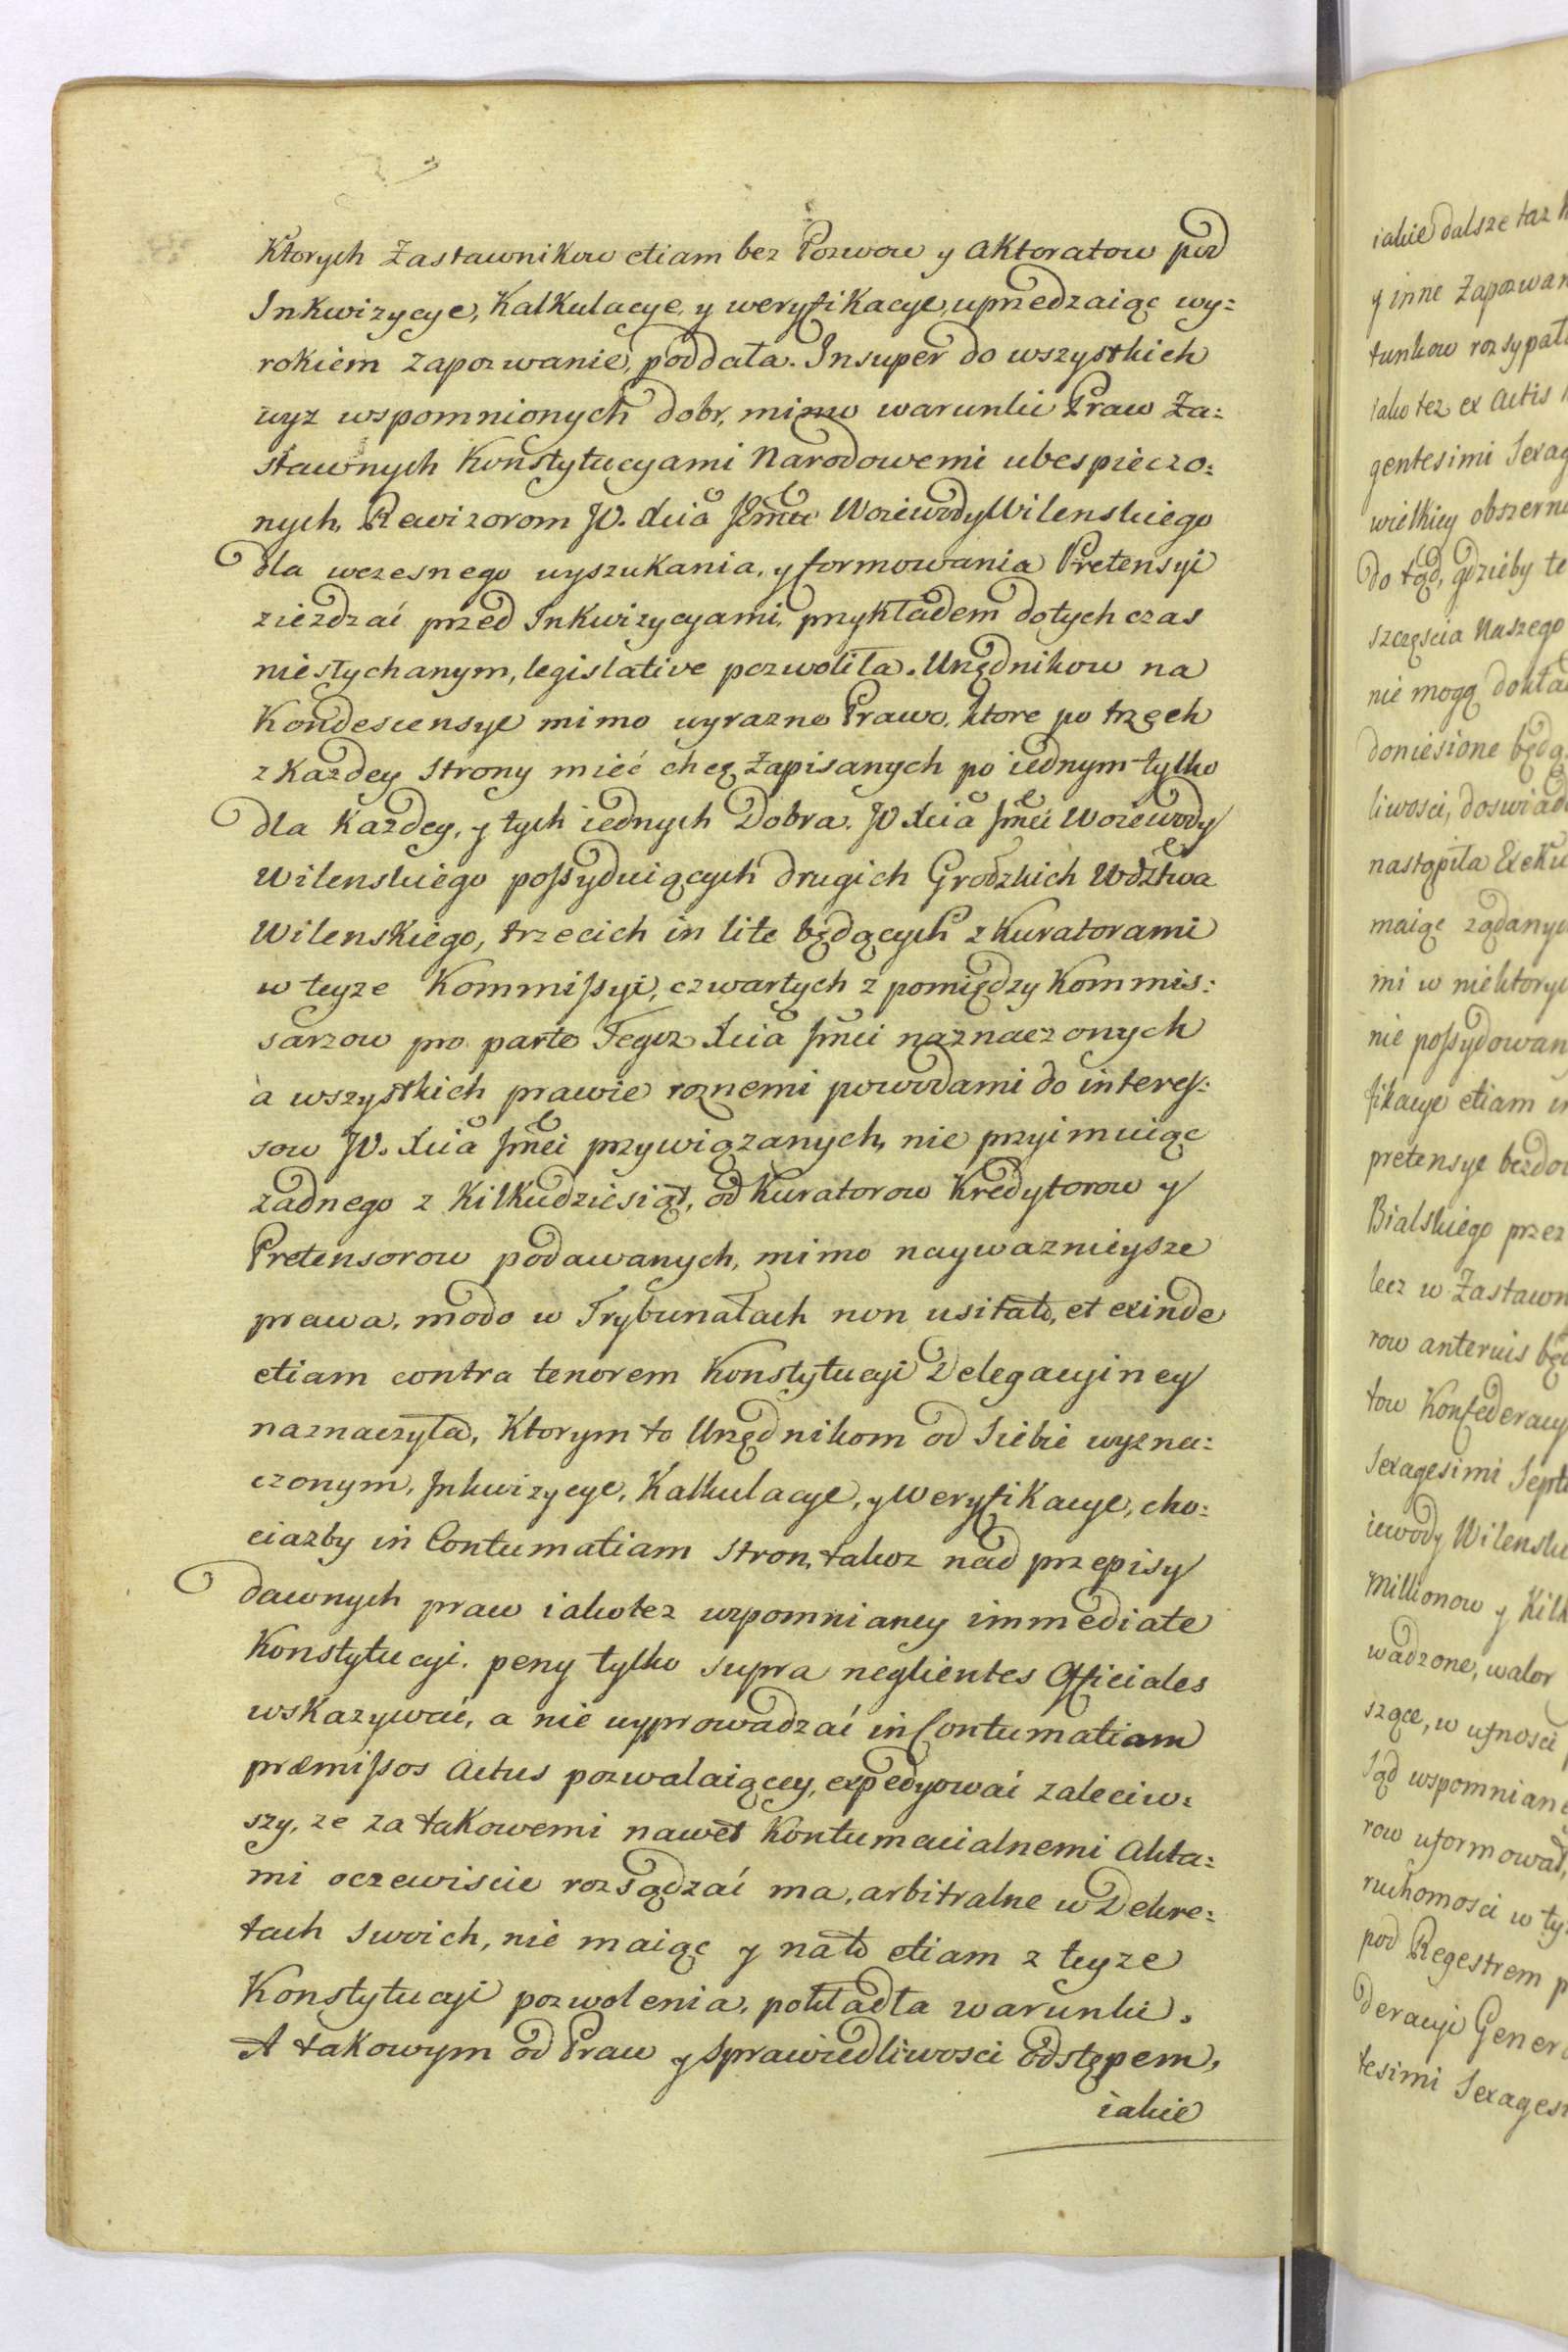 Ktorych Zastawnikow etiam bez Pozwow y aktoratow pod
Inkwizycye, Kalkulacye, y weryfikacye, uprzedzaiąc wy:
rokiem zapozwanie, poddała. Insuper do wszystkich
wyz wspomnionych dobr, mimo warunki Praw Za:
stawnych Konstytucyami Narodowemi ubespieczo:
nych, Rewizorom JO. Xcia Jmci Woiewody Wilenskiego
dla wczesnego wyszukania, y formowania Pretensyi
ziezdzać przed Inkwizycyami, przykładem dotychczas
niesłychanym, legislative pozwoliła. Urzędnikow na
Kondescensye mimo wyrazne Prawo, ktore po trzech
z Kazdey Strony mieć chcą Zapisanych po iednym tylko
dla Kazdey, y tych iednych Dobra JO Xcia Jmci Woiewody
Wilenskiego possyduiących drugich Grodzkich Wdztwa
Wilenskiego, trzecich in lite będących z Kuratorami
w teyze Kommissyi, czwartych z pomiędzy Kommis:
sarzow pro parte Tegoz Xcia Jmci naznaczonych
a wszystkich prawie roznemi powodami do interes:
sow JO. Xcia Jmci przywiązanych, nie przyimuiąc
zadnego z Kilkudziesiąt, od Kuratorow Kredytorow y
Pretensorow podawanych, mimo naywaznieysze
prawa, modo w Trybunałach non usitato, et exinde
etiam contra tenorem Konstytucyi Delegacyiney
naznaczyła, Ktorym to Urzędnikom od Siebie wyzna:
czonym, Inkwizycye, Kalkulacye, y Weryfikacye, cho:
ciazby in Contumatiam Stron, takoz nad przepisy
dawnych praw iakotez wspomnianey immediate
Konstytucyi. peny tylko supra neglientes Officiales
wskazywać, a nie wyprowadzać in Contumatiam
præmissos Actus pozwalaiącey, expedyować zaleciw:
szy, ze za takowemi nawet Kontumacialnemi Akta:
mi oczewiscie rozsądzać ma, arbitralne w Dekre:
tach swoich, nie maiąc y na to etiam z teyze
Konstytucyi pozwolenia, pokładła warunki.
A takowym od Praw y Sprawiedliwosci Odstępem,
iakie
iakie dalsze taz
y inne Zapozwan
tunkow rozsypał
iako tez ex Actis
gentesimi Sexag
wielkiey obszerno
do tąd, gdzieby te
szczęscia Naszego
nie mogą dokła
doniesione będą
liwosci, doswiad
nastąpiła Exeku
maiąc ządany
mi w niektory
nie possydowan
fikacye etiam in
pretensye bezdo
Bialskiego przez
lecz w Zastawn
row anterius bę
tow Konfederacy
Sexagesimi Sept
iewody Wilensk
Millionow y Kilk
wadzone, walor
szące, w ufnosci
Sąd wspomnian
row uformował,
ruchomosci w ty
pod Regestrem p
deracyi Genera
tesimi Sexages